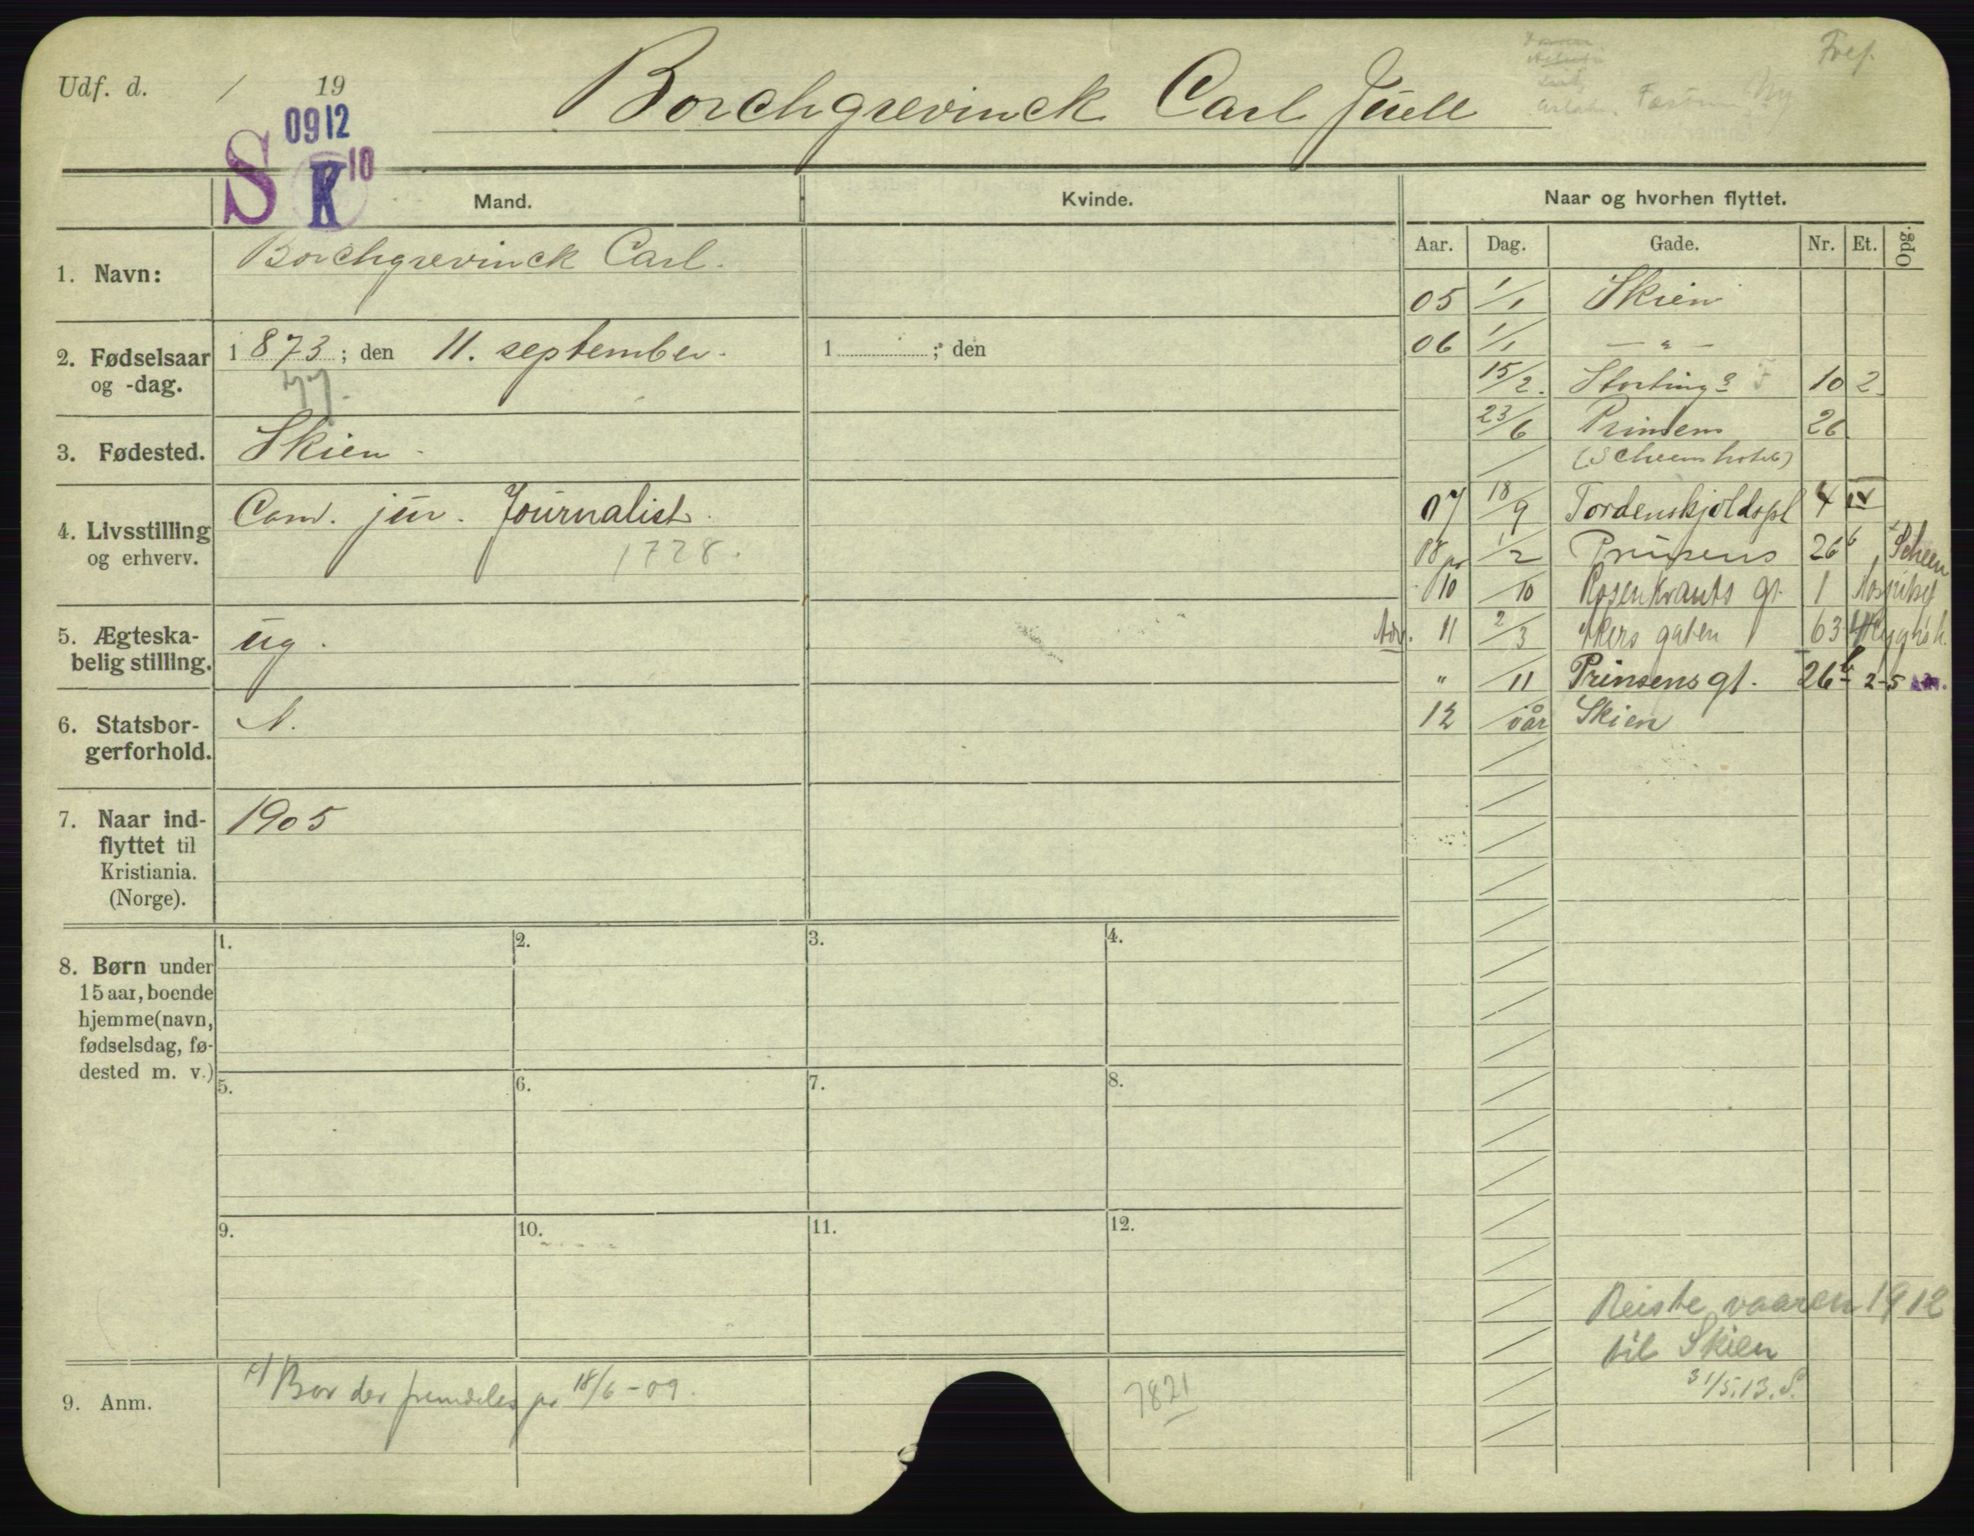 Udf. d. / 19
Borchgrevinck Carl Juell
Fref.
Ny
0912
S K 10
Mand.
Kvinde.
Naar og hvorhen flyttet.
Aar. Dag. Gade. Nr. Et. Opg.
1. Navn:
Borchgrevinck Carl.
2. Fødselsaar
og -dag.
1873; den 11. september.
1 ; den
3. Fødested.
Skien
4. Livsstilling
og erhverv.
Cand. jur. Journalist.
1728.
5. Ægteska-
belig stilling.
ug.
6. Statsbor-
gerforhold.
N.
7. Naar ind-
flyttet til
Kristiania.
(Norge).
1905
05 1/1 Skien
06 1/1 — " —
15/2. Storting g 10 2
23/6 Prinsens 26
(Scheens hotel)
07 18/9 Tordenskjoldspl 4 IV
08 1/2 Prinsens 26 b Scheen
10 /10 Rosenkrants gt. 1
Adv. 11 2/3 Akers gaten 63
" /11 Prinsens gt. 26 b 2-5
12 /vår Skien
8. Børn under
15 aar, boende
hjemme (navn,
fødselsdag, fø-
dested m. v.)
1. 2. 3. 4.
5. 6. 7. 8.
9. 10. 11. 12.
Reiste vaaren 1912
til Skien
31/5.13. S.
9. Anm.
Bor der fremdeles pr 18/6-09.
7821